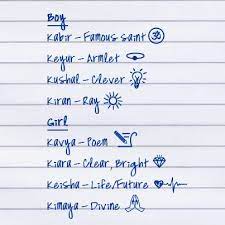 Boy
Kabir – Famous saint ॐ
Keyur – Armlet
Kushal – Clever
Kiran – Ray
Girl
Kavya – Poem
Kiara – Clear, Bright
Keisha – Life/Future
Kimaya – Divine